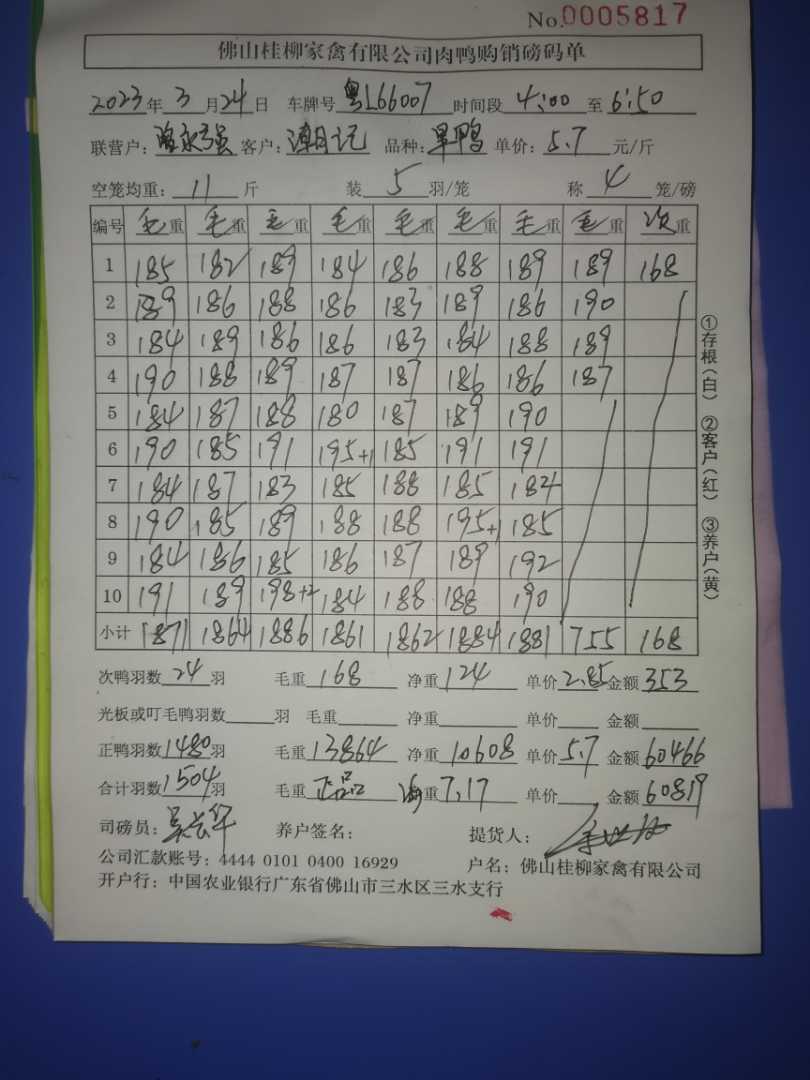 No.0005817
佛山桂柳家禽有限公司肉鸭购销磅码单
2023年3月24日 车牌号 粤L66007 时间段 4:00 至 6:50
联营户: 永强 客户: 潮月记 品种: 旱鸭 单价: 5.7 元/斤
空笼均重: 11 斤 装 5 羽/笼 称 4 笼/磅
编号 毛重 毛重 毛重 毛重 毛重 毛重 毛重 毛重 次重
1 185 182 189 184 186 188 189 189 168
2 189 186 188 186 183 189 186 190
3 184 189 186 186 183 184 188 189
4 190 188 189 187 187 186 186 187
5 184 187 188 180 187 189 190
6 190 185 191 195+1 185 191 191
7 184 187 183 185 188 185 184
8 190 185 189 188 188 195+1 185
9 184 186 185 186 187 189 192
10 191 189 198+2 184 188 188 190
小计 1871 1864 1886 1861 1862 1884 1881 755 168
次鸭羽数 24 羽 毛重 168 净重 124 单价 2.85 金额 353
光板或叮毛鸭羽数 羽 毛重 净重 单价 金额
正鸭羽数 1480 羽 毛重 13864 净重 10608 单价 5.7 金额 60466
合计羽数 1504 羽 毛重 正品 重 7.17 单价 金额 60819
司磅员: 养户签名: 提货人:
公司汇款账号: 4444 0101 0400 16929 户名: 佛山桂柳家禽有限公司
开户行: 中国农业银行广东省佛山市三水区三水支行
①存根(白) ②客户(红) ③养户(黄)